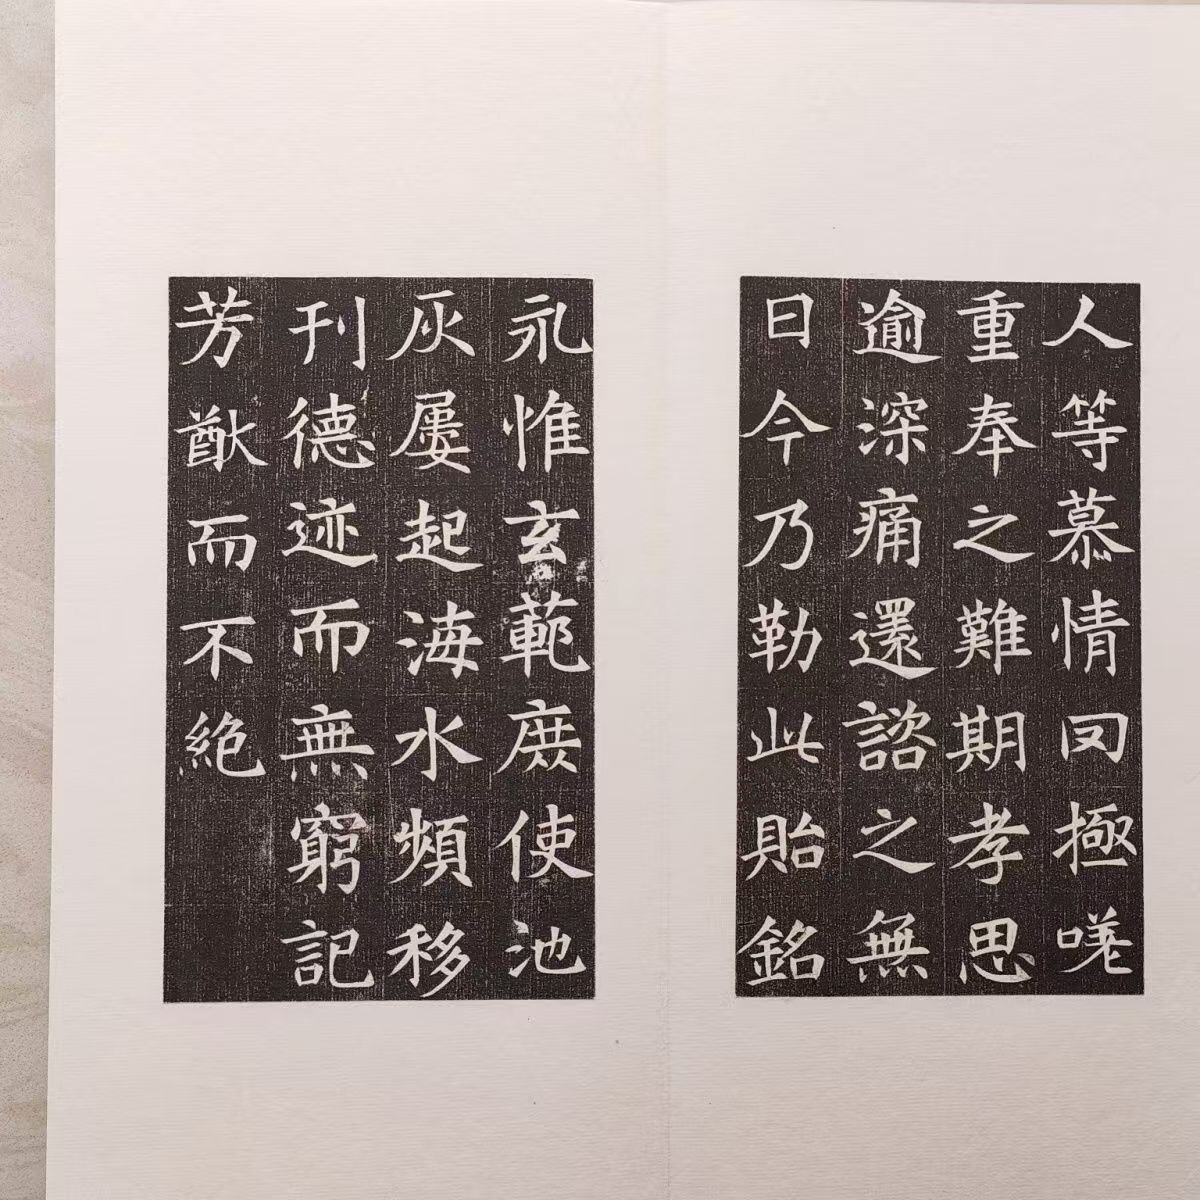 人等慕情罔極嗟
重奉之難期孝思
逾深痛還諮之無
日今乃勒此貽銘
永惟玄範庶使池
灰屡起海水頻移
刊德迹而無窮記
芳猷而不絶